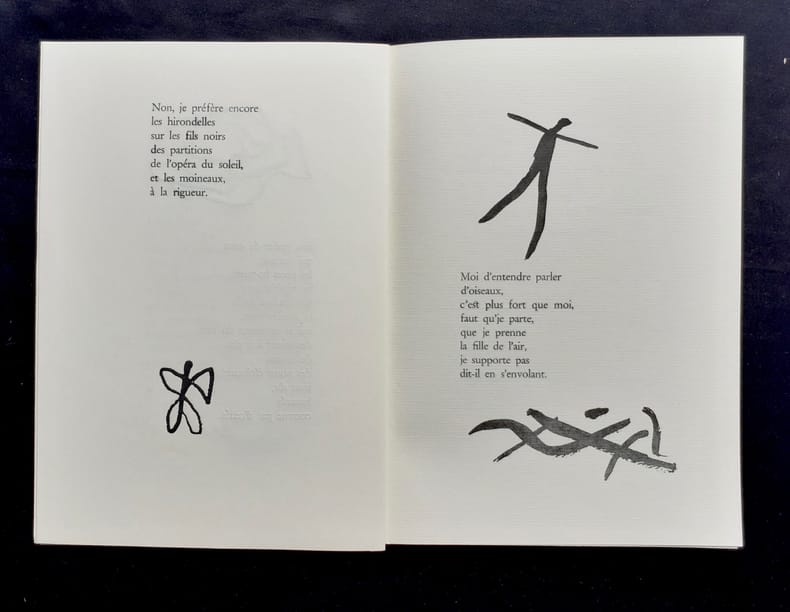 Non, je préfère encore
les hirondelles
sur les fils noirs
des partitions
de l'opéra du soleil,
et les moineaux,
à la rigueur.
Moi d'entendre parler
d'oiseaux,
c'est plus fort que moi,
faut qu'je parte,
que je prenne
la fille de l'air,
je supporte pas
dit-il en s'envolant.